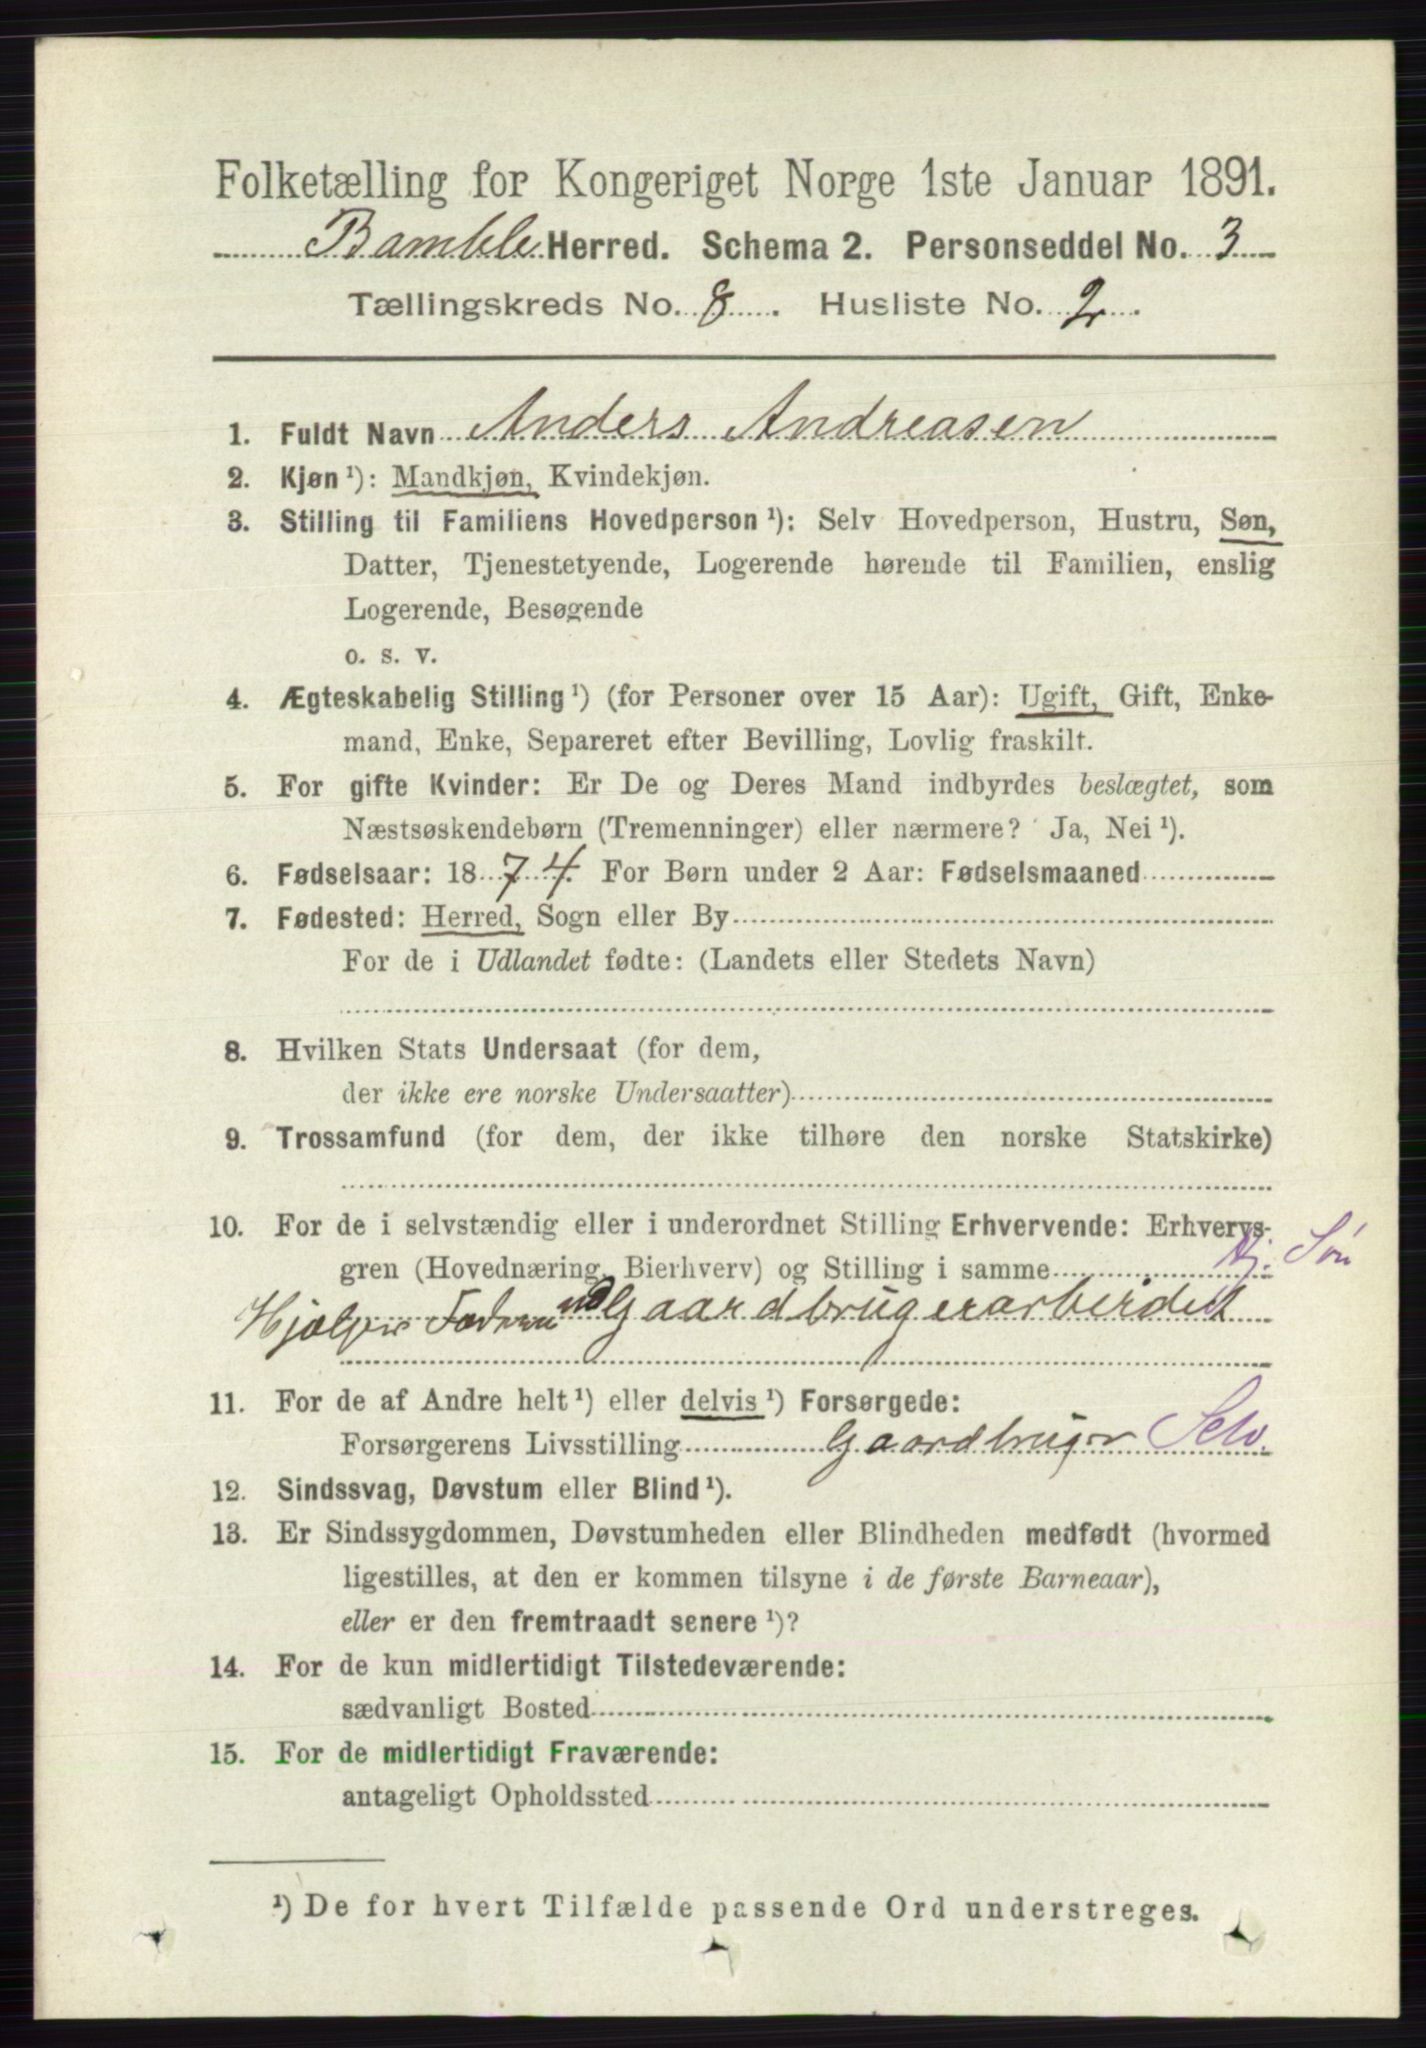 Folketælling for Kongeriget Norge 1ste Januar 1891.
Bamble Herred. Schema 2. Personseddel No. 3
Tællingskreds No. 8. Husliste No. 2.
1. Fuldt Navn Anders Andreasen
2. Kjøn ¹): Mandkjøn, Kvindekjøn.
3. Stilling til Familiens Hovedperson ¹): Selv Hovedperson, Hustru, Søn,
Datter, Tjenestetyende, Logerende hørende til Familien, enslig
Logerende, Besøgende
o. s. v.
4. Ægteskabelig Stilling ¹) (for Personer over 15 Aar): Ugift, Gift, Enke-
mand, Enke, Separeret efter Bevilling, Lovlig fraskilt.
5. For gifte Kvinder: Er De og Deres Mand indbyrdes beslægtet, som
Næstsøskendebørn (Tremenninger) eller nærmere? Ja, Nei ¹).
6. Fødselsaar: 1874. For Børn under 2 Aar: Fødselsmaaned
7. Fødested: Herred, Sogn eller By
For de i Udlandet fødte: (Landets eller Stedets Navn)
8. Hvilken Stats Undersaat (for dem,
der ikke ere norske Undersaatter)
9. Trossamfund (for dem, der ikke tilhøre den norske Statskirke)
10. For de i selvstændig eller i underordnet Stilling Erhvervende: Erhvervs-
gren (Hovednæring, Bierhverv) og Stilling i samme Hj. Søn
Hjælper Faderen ved Gaardbrugerarbeidet
11. For de af Andre helt ¹) eller delvis ¹) Forsørgede:
Forsørgerens Livsstilling Gaardbruger Selv.
12. Sindssvag, Døvstum eller Blind ¹).
13. Er Sindssygdommen, Døvstumheden eller Blindheden medfødt (hvormed
ligestilles, at den er kommen tilsyne i de første Barneaar),
eller er den fremtraadt senere ¹)?
14. For de kun midlertidigt Tilstedeværende:
sædvanligt Bosted
15. For de midlertidigt Fraværende:
antageligt Opholdssted
¹) De for hvert Tilfælde passende Ord understreges.